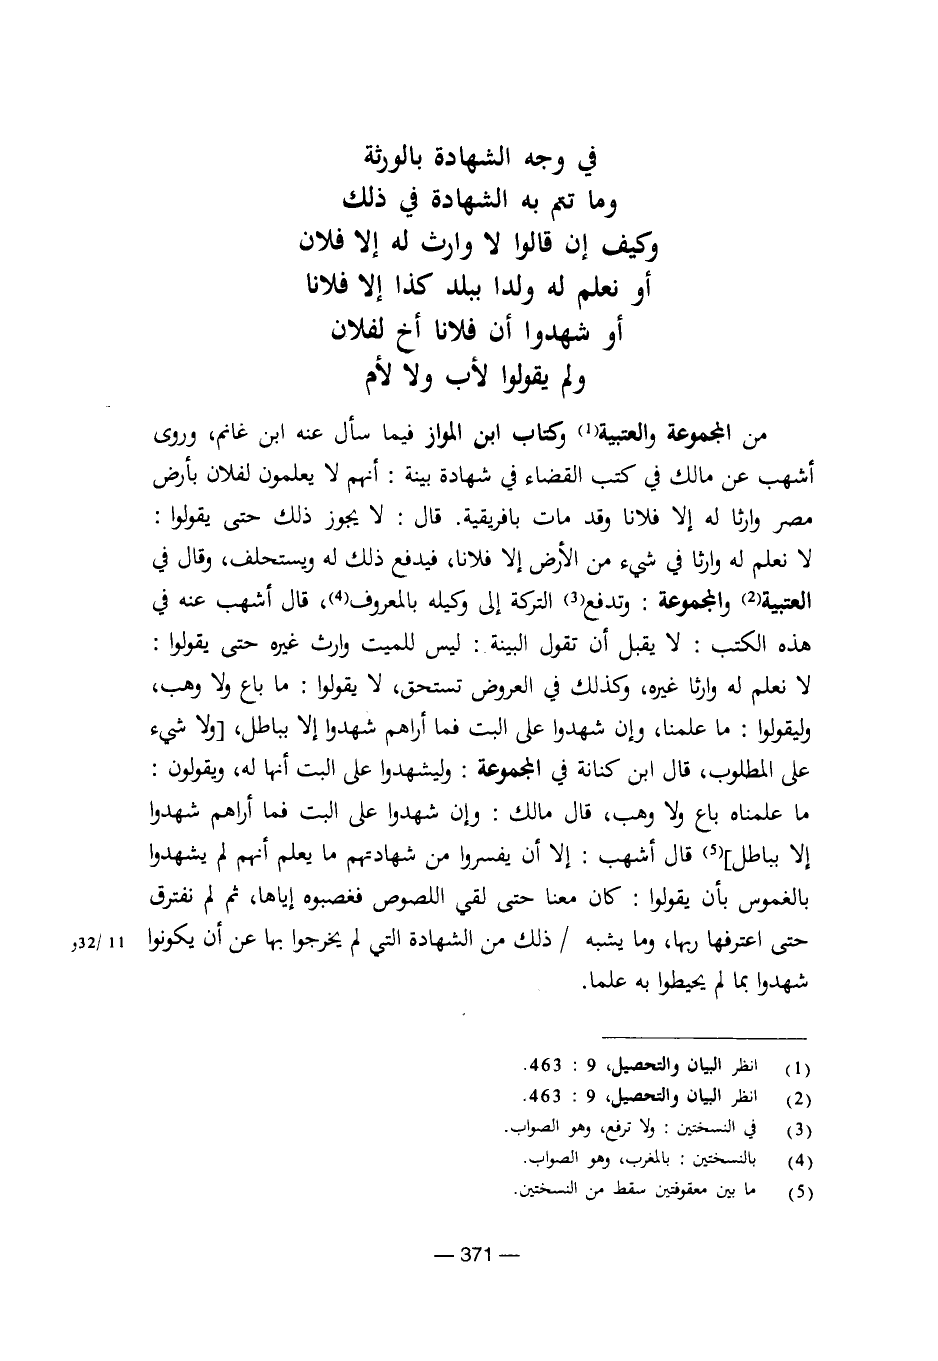 في وجه الشهادة بالورثة
وما تتم به الشهادة في ذلك
وكيف إن قالوا لا وارث له إلا فلان
أو نعلم له ولدا ببلد كذا إلا فلانا
أو شهدوا أن فلانا أخ لفلان
ولم يقولوا لأب ولا لأم
من المجموعة والعتبية(1) وكتاب ابن المواز فيما سأل عنه ابن غانم، وروى
أشهب عن مالك في كتب القضاء في شهادة بينة : أنهم لا يعلمون لفلان بأرض
مصر وارثا له إلا فلانا وقد مات بافريقية. قال : لا يجوز ذلك حتى يقولوا :
لا نعلم له وارثا في شيء من الأرض إلا فلانا، فيدفع ذلك له ويستحلف، وقال في
العتبية(2) والمجموعة : وتدفع(3) التركة إلى وكيله بالمعروف(4)، قال أشهب عنه في
هذه الكتب : لا يقبل أن تقول البينة : ليس للميت وارث غيره حتى يقولوا :
لا نعلم له وارثا غيره، وكذلك في العروض تستحق، لا يقولوا : ما باع ولا وهب،
وليقولوا : ما علمنا، وإن شهدوا على البت فما أراهم شهدوا إلا بباطل، [ولا شيء
على المطلوب، قال ابن كنانة في المجموعة : وليشهدوا على البت أنها له، ويقولون :
ما علمناه باع ولا وهب، قال مالك : وإن شهدوا على البت فما أراهم شهدوا
إلا بباطل](5) قال أشهب : إلا أن يفسروا من شهادتهم ما يعلم أنهم لم يشهدوا
بالغموس بأن يقولوا : كان معنا حتى لقي اللصوص فغصبوه إياها، ثم لم نفترق
حتى اعترفها ربها، وما يشبه / ذلك من الشهادة التي لم يخرجوا بها عن أن يكونوا 11 /32و
شهدوا بما لم يحيطوا به علما.
(1) انظر البيان والتحصيل، 9 : 463.
(2) انظر البيان والتحصيل، 9 : 463.
(3) في النسختين : ولا ترفع، وهو الصواب.
(4) بالنسختين : بالمغرب، وهو الصواب.
(5) ما بين معقوفتين سقط من النسختين.
— 371 —